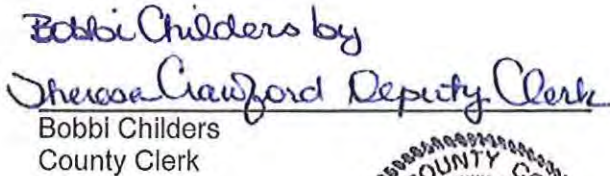 Bobbi Childers by
Theresa Crawford Deputy Clerk
Bobbi Childers
County Clerk
COUNTY CO